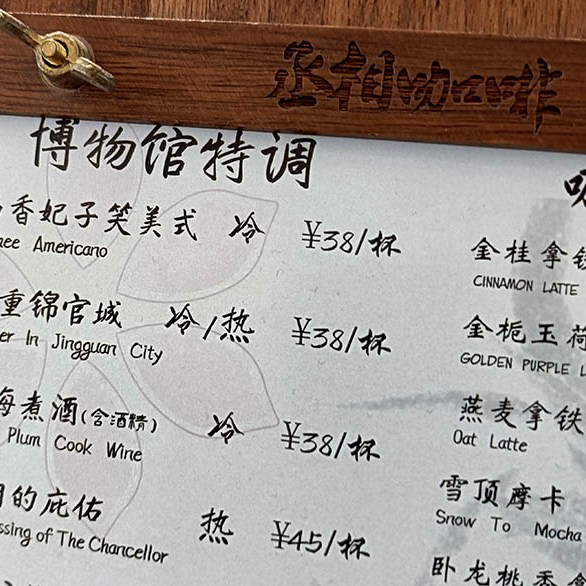 丞相咖啡
博物馆特调
香妃子笑美式 冷 ¥38/杯
Americano
重锦官城 冷/热 ¥38/杯
In Jingguan City
煮酒(含酒精) 冷 ¥38/杯
Plum Cook Wine
的庇佑 热 ¥45/杯
of The Chancellor
金桂拿铁
CINNAMON LATTE
金栀玉荷
GOLDEN PURPLE L
燕麦拿铁
Oat Latte
雪顶摩卡
Snow To Mocha
卧龙桃香